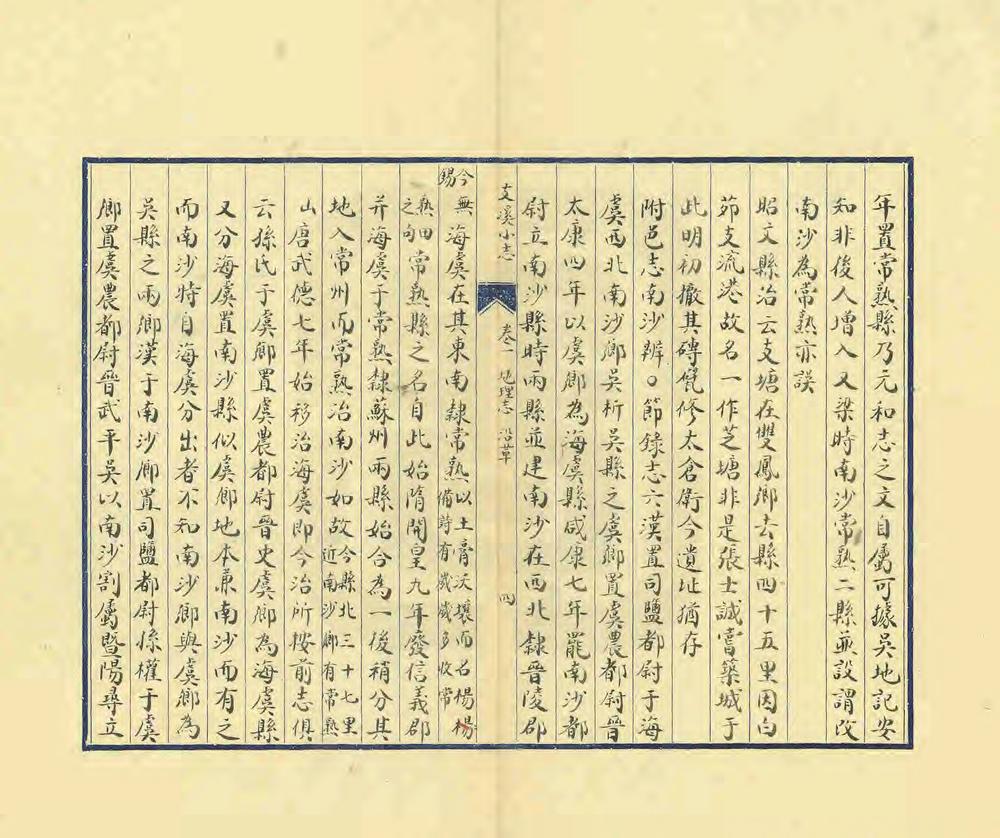 年置常熟縣乃元和志之文自屬可據吳地記安
知非後人增入又梁時南沙常熟二縣並設謂改
南沙為常熟亦誤
昭文縣治云支塘在雙鳳鄉去縣四十五里因白
茆支流港故名一作芝塘非是張士誠嘗築城于
此明初撤其磚甃修太倉衛今遺址猶存
附邑志南沙辨〇節錄志六漢置司鹽都尉于海
虞西北南沙鄉吳析吳縣之虞鄉置虞農都尉晉
太康四年以虞鄉為海虞縣咸康七年罷南沙都
尉立南沙縣時兩縣並建南沙在西北隸晉陵郡
支溪小志 卷一 地理志 沿革 四
今無錫海虞在其東南隸常熟以土膏沃壤而名楊楊備時有歲歲多收常
熟田之句常熟縣之名自此始隋開皇九年發信義郡
并海虞于常熟隸蘇州兩縣始合為一後稍分其
地入常州而常熟治南沙如故今縣北三十七里近南沙鄉有常熟
山唐武德七年始移治海虞即今治所按前志俱
云孫氏于虞鄉置虞農都尉晉史虞鄉為海虞縣
又分海虞置南沙縣似虞鄉地本兼南沙而有之
而南沙特自海虞分出者不知南沙鄉與虞鄉為
吳縣之兩鄉漢于南沙鄉置司鹽都尉孫權于虞
鄉置虞農都尉晉武平吳以南沙割屬暨陽尋立